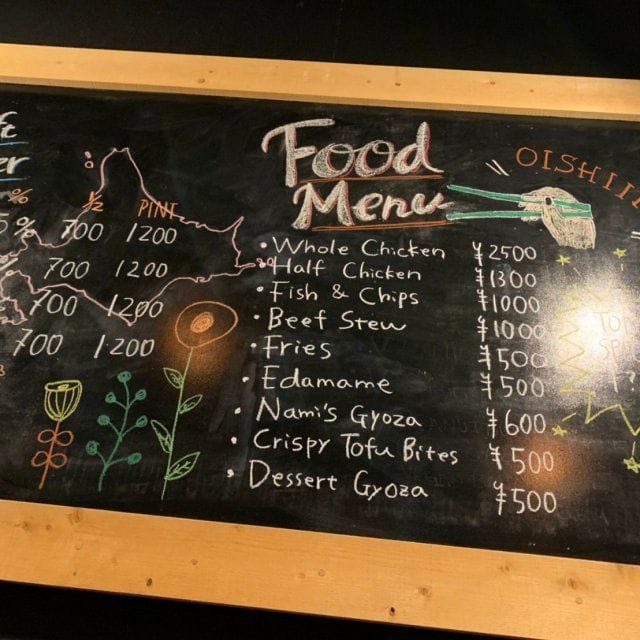 ½ PINT
5% 700 1200
700 1200
700 1200
700 1200
Food
Menu
OISHII
• Whole Chicken ¥2500
• Half Chicken ¥1300
• Fish & Chips ¥1000
• Beef Stew ¥1000
• Fries ¥500
• Edamame ¥500
• Nami's Gyoza ¥600
• Crispy Tofu Bites ¥500
• Dessert Gyoza ¥500